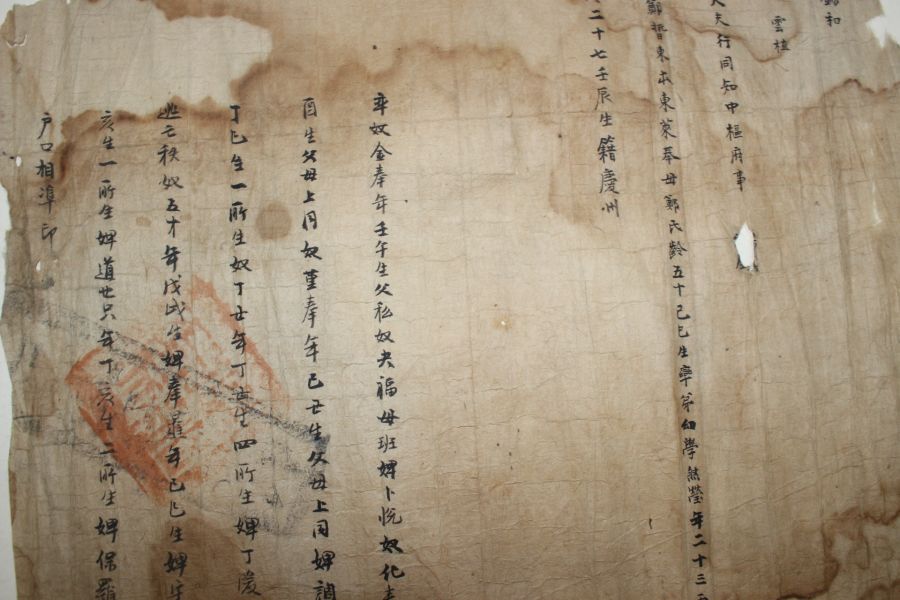 鄭和
雲植
大夫行同知中樞府事
鄭晳東本東萊奉母鄭氏齡五十己巳生率弟幼學 瑩年二十三
二十七壬辰生籍慶州
率奴金奉年壬午生父私奴夫福母班婢卜悅奴化
酉生父母上同奴 奉年己丑生父母上同婢
丁巳生一所生奴丁丑年丁丑生四所生婢丁
逃亡秩奴五才年戊戌生婢奉 年己巳生婢
亥生一所生婢道也只年丁亥生二所生婢保
戶口相準印